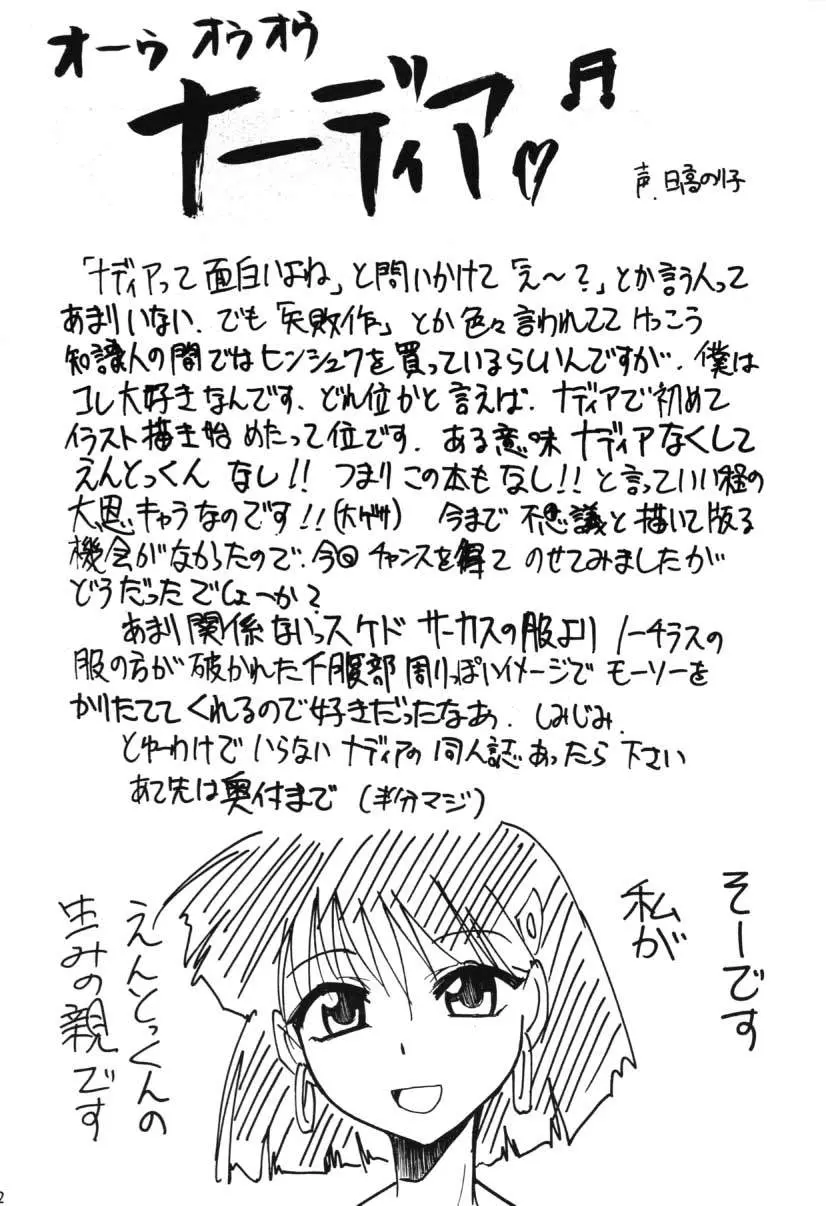 オーゥ オゥオゥ
ナーディア♡♬
声.日高のり子
「ナディアって面白いよね」と問いかけて「え〜?」とか言う人って
あまりいない.でも「失敗作」とか色々言われてて けっこう
知識人の間ではヒンシュクを買っているらしいんですが.僕は
コレ大好きなんです.どれ位かと言えば.ナディアで初めて
イラスト描き始めたって位です.ある意味ナディアなくして
えんとっくん なし!!つまりこの本もなし!!と言っていい程の
大恩キャラなのです!!(大ゲサ) 今まで不思議と描いて版る
機会がなかったので.今回チャンスを得て のせてみましたが
どうだったでしょーか?
あまり関係ないっスケド サーカスの服より ノーチラスの
服の方が破かれた下腹部周りっぽいイメージで モーソーを
かりたててくれるので好きだったなあっ.しみじみ.
とゆーわけで いらない ナディアの同人誌あったら下さい
あて先は奥付まで(半分マジ)
そーです
私が
えんとっくんの
生みの親です
2